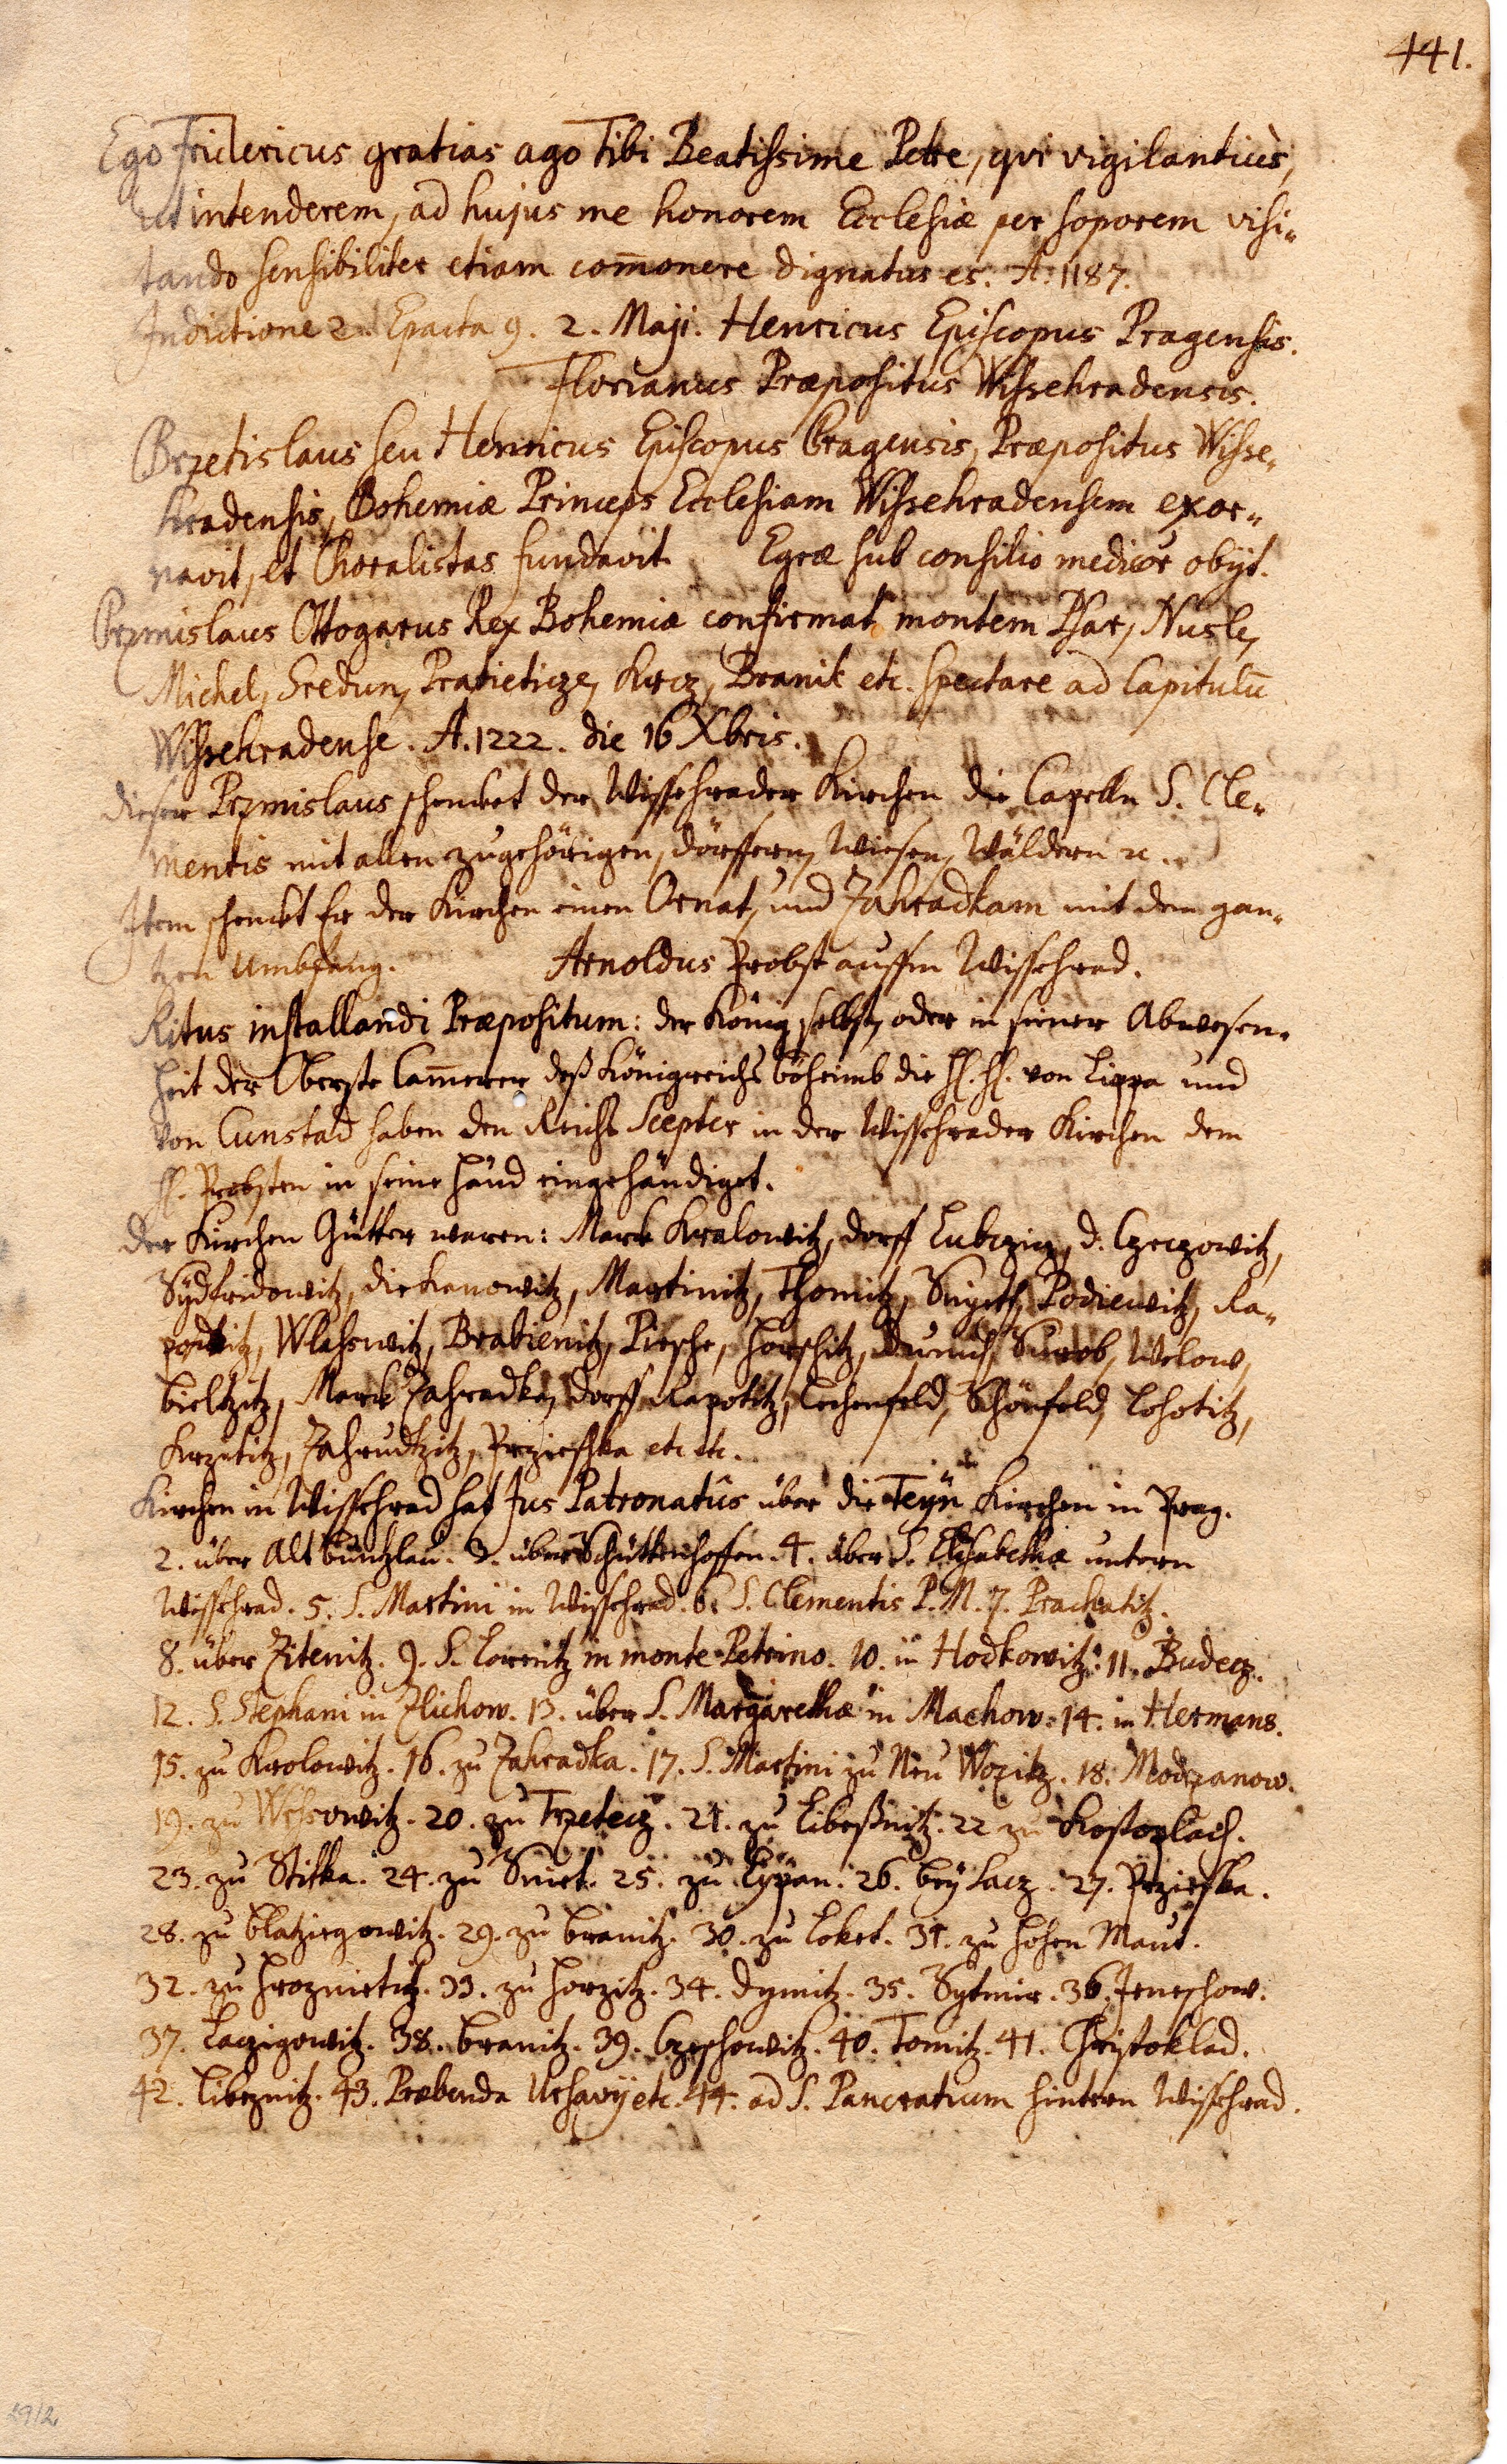 441.
Ego Fridericus gratias ago Tibi Beatissime Petre, qui vigilantiùs,
ut intenderem, ad hujus me honorem Ecclesiæ per soporem visi-
tando sensibiliter etiam com̄onere dignatus es. A. 1187.
Indictione 2. Epacta 9. 2. Maji. Henricus Episcopus Pragensis.
Florianus Præpositus Wissehradensis.
Brzetislaus seu Henricus Episcopus Pragensis, Præpositus Wisse-
hradensis, Bohemiæ Princeps Ecclesiam Wissehradensem exor-
navit, et Choralistas fundavit. Egræ sub consilio medicor obijt.
Przmislaus Ottogarus Rex Bohemiæ confirmat montem Psar, Nusle,
Michel, Sredun, Pratieticze, Krcz, Branik etc. spectare ad Capitulū
Wissehradense. A. 1222. die 16 Xbris.
dieser Przmislaus schencket der Wissehrader Kirchen die Capelln S. Cle-
mentis mit allen zugehörigen, dörffern, Wiesen, Wäldern ꝛc.
Item schenckt Er der Kirchen einen Ornat, und Zahradkam mit dem gan-
tzen Umbfang. Arnoldus Probst auffm Wissehrad.
Ritus installandi Præpositum: der König selbst, oder in seiner Abwesen-
heit der Oberste Cam̄erer deß Königreichs böheimb die H. H. von Lippa und
von Cunstad haben den Reichs Scepter in der Wissehrader Kirchen dem
H. Probsten in seine Händ eingehändiget.
der Kirchen Gütter waren: Marck Kralowitz, dorff Lubczicz, d. Czeczowitz,
Sydfridowitz, diekanowitz, Martinitz, Thomitz, Podiewitz, Ra-
potitz, Wlasswitz, Bratienitz, Piesche, Horschitz, Welow,
bieltzitz, Marck Zahradka, dorff Rapotitz, Lechenfeld, Schönfeld, Lohotitz,
Krzetitz, Zahrudtzitz, Przieschka etc etc.
Kirchen in Wissehrad hat Jus Patronatûs über die Teÿn Kirchen in Prag.
2. über Alt buntzlau. 3. über Schüttenhoffen. 4. über S. Elisabethæ untern
Wissehrad. 5. S. Martini in Wissehrad. 6. S. Clementis P. M. 7. Prachatitz.
8. über Zitenitz. 9. S. Lorentz in monte Petrino. 10. in Hodkowitz. 11. Budecz.
12. S. Stephani in Zlichow. 13. über S. Margarethæ in Machow. 14. in Hermans.
15. zu Krolowitz. 16. zu Zahradka. 17. S. Martini zu Neu Wozitz. 18. Modrzanow.
19. zu Wrssowitz. 20. zu Trzetecz. 21. zu Libeßnitz. 22 zu Kostoplach.
23. zu Stitka. 24. zu 25. zu Lÿpan. 26. beÿ Lacz. 27. Przieska.
28. zu blatziegowitz. 29. zu branitz. 30. zu Loket. 31. zu Hohen Maut.
32. zu Hroznietitz. 33. zu Horzitz. 34. Dymitz. 35. Sytmir. 36. Jeneschow.
37. Laczigowitz. 38. branitz. 39. Czeschowitz. 40. Tomitz. 41. Christoklad.
42. Libeznitz. 43. Præbenda Ursavÿ etc. 44. ad S. Pancratium hintern Wissehrad.